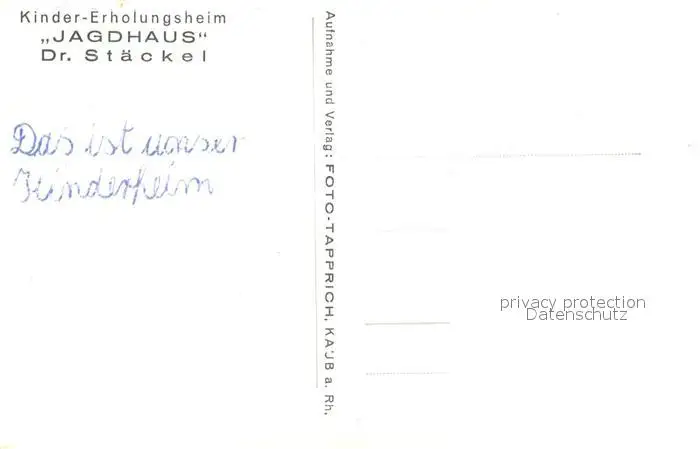 Kinder-Erholungsheim
„JAGDHAUS“
Dr. Stäckel
Das ist unser
Kinderheim
Aufnahme und Verlag: FOTO-TAPPRICH, KAUB a. Rh.
privacy protection
Datenschutz